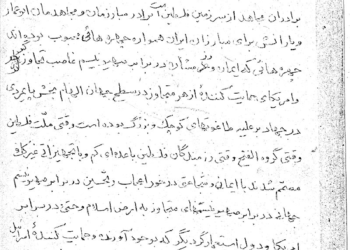 برادران مجاهد از سرزمین فلسطین برادر مبارزمان و مجاهدمان ابوعمار
و یارانش برای مبارزان ایران همواره چهره هائی محبوب بوده‌اند
چهره هائی که ایمان و مشتشان در برابر صهیونیسم غاصب متجاوز
و امریکای حمایت کننده از هر متجاوز در سطح جهان الهام بخش پایمردی
در جهاد بر علیه طاغوتهای کوچک و بزرگ بوده است وقتی ملت فلسطین
وقتی گروه الفتح وقتی رزمندگان فلسطین با عده‌ای کم و با تجهیزاتی غیر کافی
مصمم شدند با ایمان و شجاعتی در خور اعجاب و تحسین در برابر صهیونیسم
جهانی در برابر صهیونیستهای متجاوز به ارض اسلام و حتی در برابر
امریکا و دول استعمارگر دیگر که بوجود آورنده و حمایت کننده اسرائیل